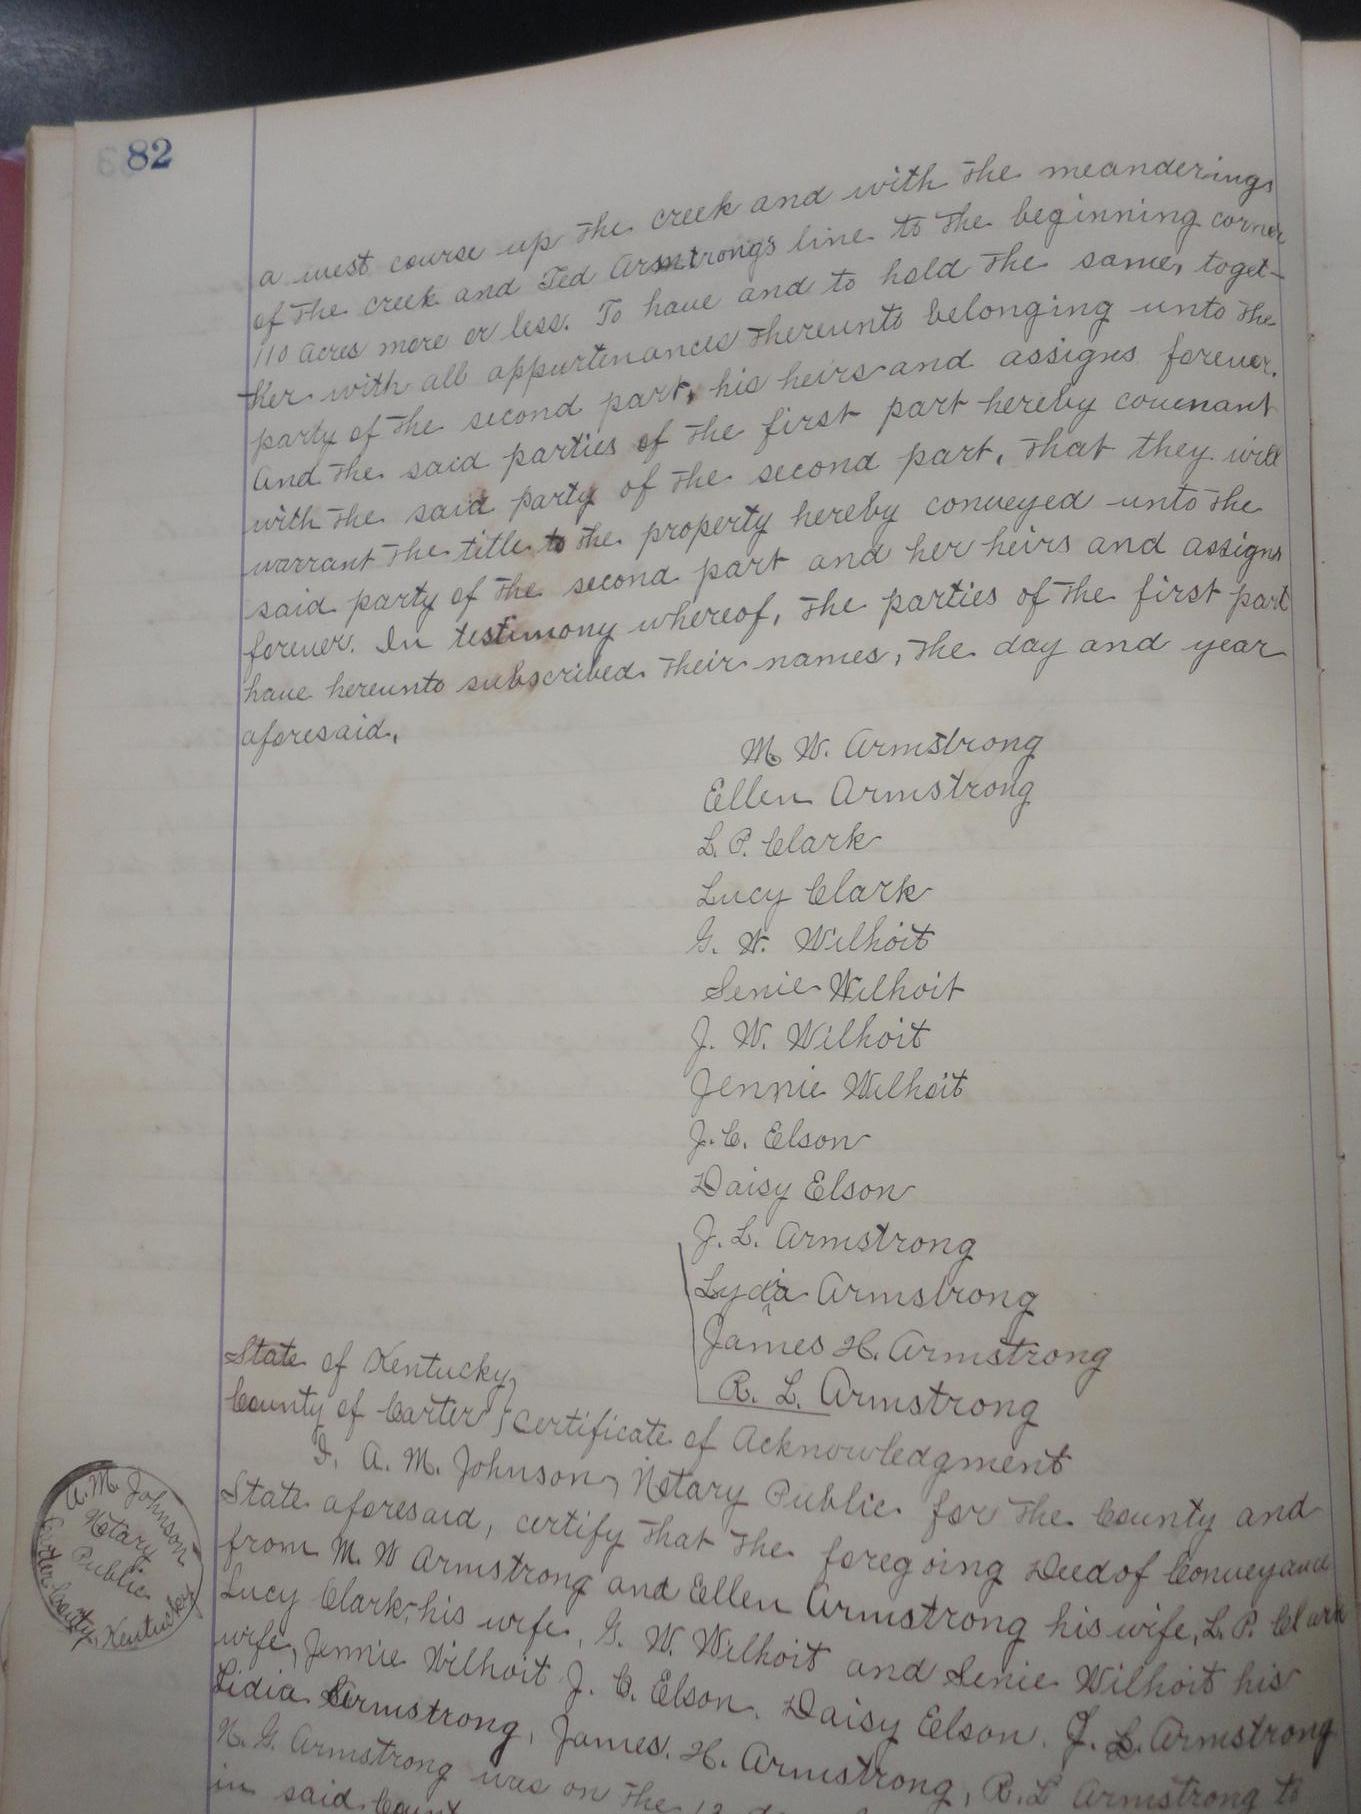 82
a west course up the creek and with the meanderings
of the creek and Ted Armstrongs line to the beginning corner
110 acres more or less. To have and to hold the same, toget-
her with all appurtenances thereunto belonging unto the
party of the second part, his heirs and assigns forever.
And the said parties of the first part hereby covenant
with the said party of the second part, that they will
warrant the title to the property hereby conveyed unto the
said party of the second part and her heirs and assigns
forever. In testimony whereof, the parties of the first part
have hereunto subscribed their names, the day and year
aforesaid.
M. W. Armstrong
Ellen Armstrong
L. P. Clark
Lucy Clark
G. W. Wilhoit
Senie Wilhoit
J. W. Wilhoit
Jennie Wilhoit
J. C. Elson
Daisy Elson
J. L. Armstrong
Lydia Armstrong
James H. Armstrong
R. L. Armstrong
State of Kentucky,
County of Carter } Certificate of Acknowledgment
I, A. M. Johnson, Notary Public for the County and
State aforesaid, certify that the foregoing Deed of Conveyance
from M. W Armstrong and Ellen Armstrong his wife, L. P. Clark
Lucy Clark, his wife, G. W. Wilhoit and Senie Wilhoit his
wife, Jennie Wilhoit J. C. Elson. Daisy Elson. J. L. Armstrong
Lidia Armstrong, James. H. Armstrong, R. L Armstrong to
N. G. Armstrong was on the 12
in said
A. M. Johnson
Notary
Public
Carter County, Kentucky